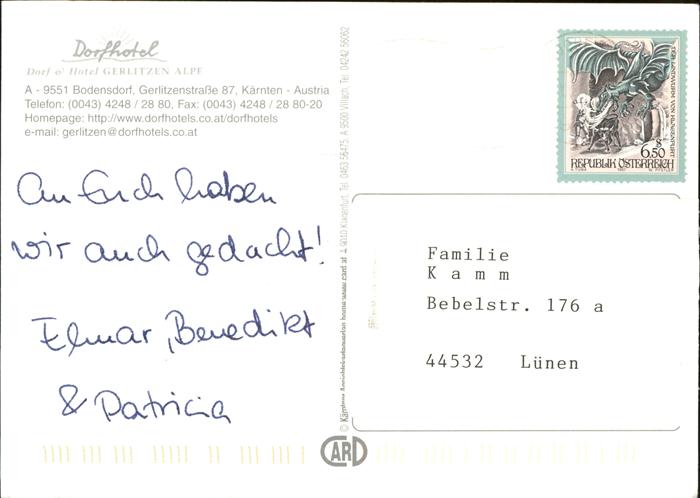 Dorfhotel
Dorf o' Hotel GERLITZEN ALPE
A - 9551 Bodensdorf, Gerlitzenstraße 87, Kärnten - Austria
Telefon: (0043) 4248 / 28 80, Fax: (0043) 4248 / 28 80-20
Homepage: http://www.tui.co.at/dorfhotels
e-mail: gerlitzen@dorfhotels.co.at
An Euch haben
wir auch gedacht!
Elmar, Benedikt
& Patricia
A 9500 Villach, Tel. 04242 56062
A 9010 Klagenfurt, Tel. 0463 56475
CARD
DER LINDWURM VON KLAGENFURT
6,50
REPUBLIK ÖSTERREICH
1997
Familie
Kamm
Bebelstr. 176 a
44532 Lünen